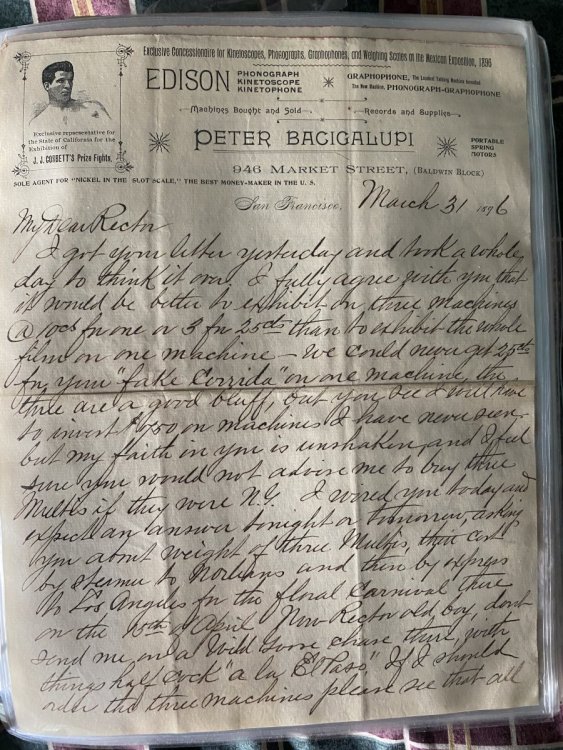 Exclusive Concessionaire for Kinetoscopes, Phonographs, Graphophones, and Weighing Scales at the Mexican Exposition, 1896
EDISON PHONOGRAPH KINETOSCOPE KINETOPHONE
GRAPHOPHONE, The Loudest Talking Machine Invented
The New Machine, PHONOGRAPH-GRAPHOPHONE
Machines Bought and Sold
Records and Supplies
PETER BACIGALUPI
PORTABLE SPRING MOTORS
Exclusive representative for
the State of California for the
Exhibition of
J. J. CORBETT'S Prize Fights.
946 MARKET STREET, (BALDWIN BLOCK)
SOLE AGENT FOR "NICKEL IN THE SLOT SCALE," THE BEST MONEY-MAKER IN THE U. S.
San Francisco, March 31 1896
My Dear Rector
I got your letter yesterday and took a whole
day to think it over, I fully agree with you that
it would be better to exhibit on three machines
@ 10cs for one or 3 for 25cts than to exhibit the whole
film on one machine — we could never get 25cts
for your "fake Corrida" on one machine, the
three are a good bluff, but you see I will have
to invest on machines I have never seen
but my faith in you is unshaken, and I feel
sure you would not advise me to buy three
Multis if they were N.G. I wired you today and
expect an answer tonight or tomorrow, asking
you about weight of three Multis, their cost
by steamer to Norleans and then by express
to Los Angeles for the floral Carnival there
on the of April. Now Rector old boy, don't
send me on a Wild Goose chase there, with
things half cock "a la El Paso," If I should
order the three machines please see that all